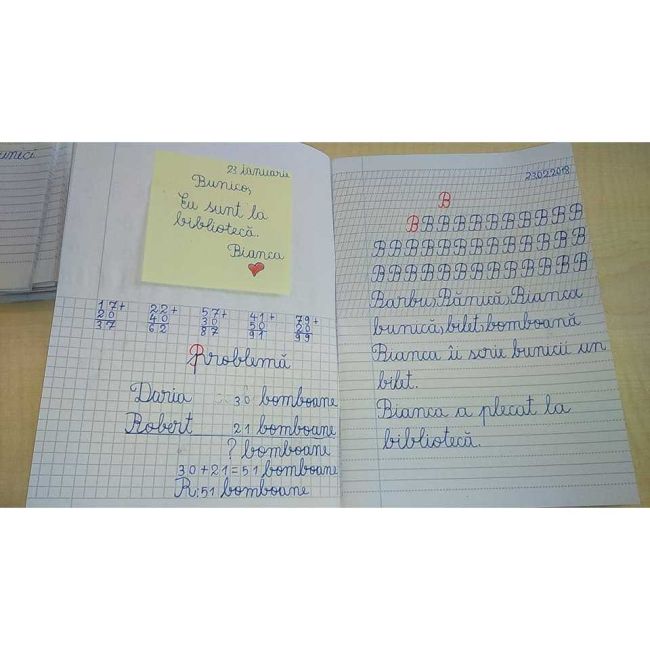 unici
23 ianuarie
Bunico,
Eu sunt la
bibliotecă.
Bianca
17+ 22+ 57+ 41+ 79+
20 40 30 50 20
37 62 87 91 99
Problemă
Daria 30 bomboane
Robert 21 bomboane
? bomboane
30+21=51 bomboane
R:51 bomboane
23.02.2018
B
B B B B B B B B B B B
B B B B B B B B B B B B B
B B B B B B B B B B B B B
Barbu, Bănică, Bianca
bunică, bilet, bomboană
Bianca îi scrie bunicii un
bilet.
Bianca a plecat la
bibliotecă.